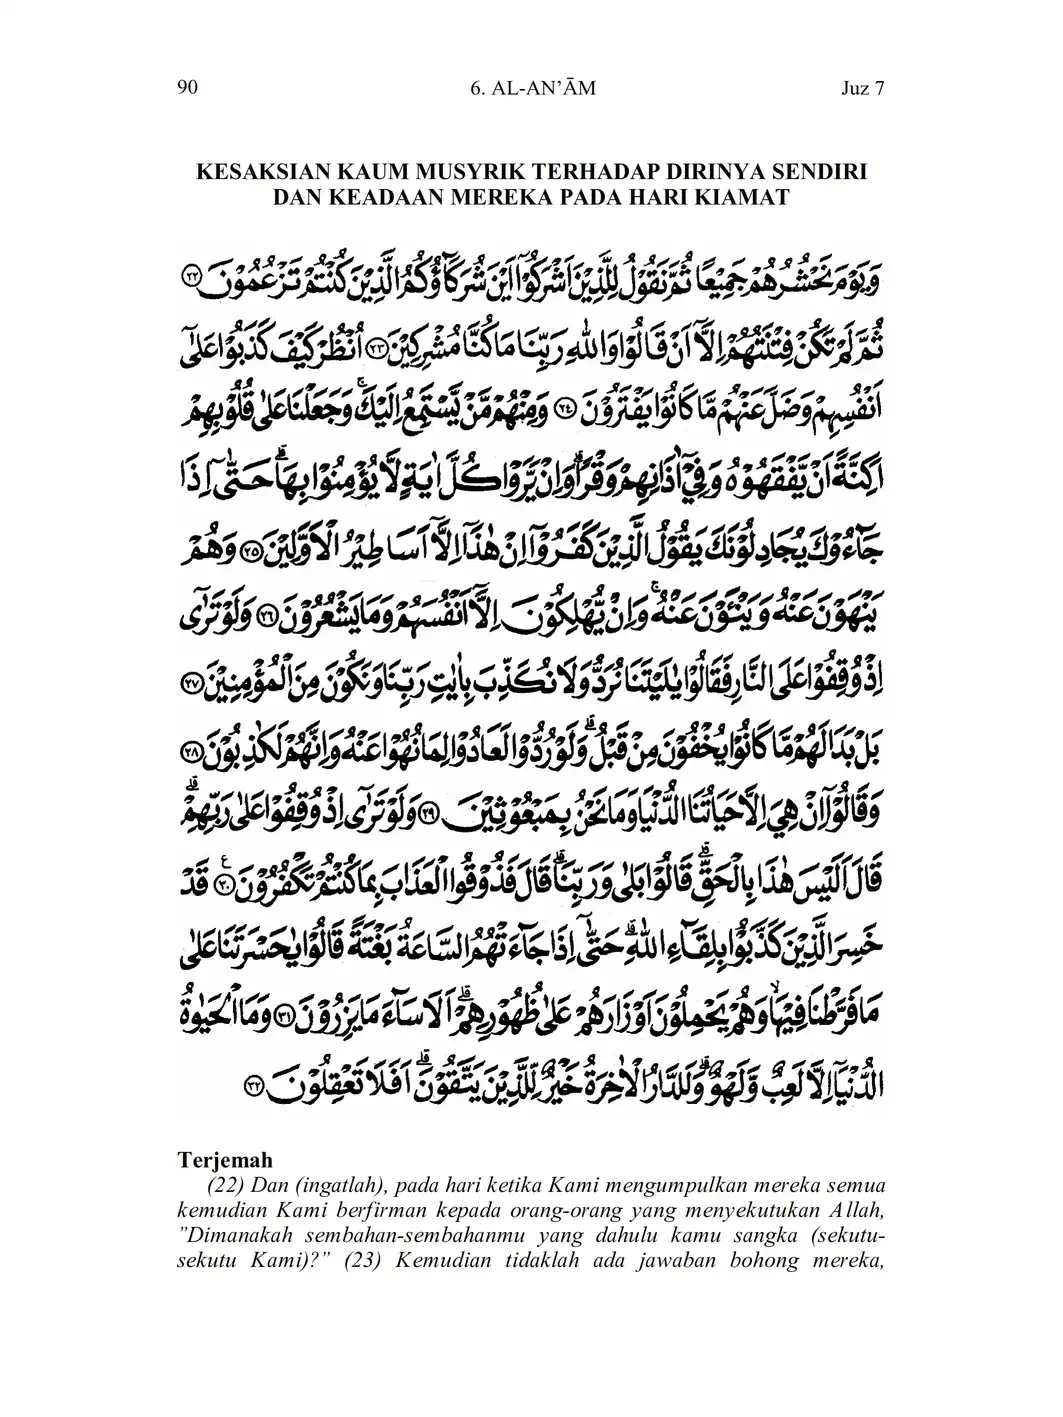 90 6. AL-AN’ĀM Juz 7
KESAKSIAN KAUM MUSYRIK TERHADAP DIRINYA SENDIRI
DAN KEADAAN MEREKA PADA HARI KIAMAT
وَيَوْمَ نَحْشُرُهُمْ جَمِيْعًا ثُمَّ نَقُوْلُ لِلَّذِيْنَ اَشْرَكُوْٓا اَيْنَ شُرَكَاۤؤُكُمُ الَّذِيْنَ كُنْتُمْ تَزْعُمُوْنَ ٢٢
ثُمَّ لَمْ تَكُنْ فِتْنَتُهُمْ اِلَّآ اَنْ قَالُوْا وَاللّٰهِ رَبِّنَا مَا كُنَّا مُشْرِكِيْنَ ٢٣ اُنْظُرْ كَيْفَ كَذَبُوْا عَلٰٓى
اَنْفُسِهِمْ وَضَلَّ عَنْهُمْ مَّا كَانُوْا يَفْتَرُوْنَ ٢٤ وَمِنْهُمْ مَّنْ يَّسْتَمِعُ اِلَيْكَ ۚ وَجَعَلْنَا عَلٰى قُلُوْبِهِمْ
اَكِنَّةً اَنْ يَّفْقَهُوْهُ وَفِيْٓ اٰذَانِهِمْ وَقْرًا ۗوَاِنْ يَّرَوْا كُلَّ اٰيَةٍ لَّا يُؤْمِنُوْا بِهَا ۗحَتّٰٓى اِذَا
جَاۤءُوْكَ يُجَادِلُوْنَكَ يَقُوْلُ الَّذِيْنَ كَفَرُوْٓا اِنْ هٰذَآ اِلَّآ اَسَاطِيْرُ الْاَوَّلِيْنَ ٢٥ وَهُمْ
يَنْهَوْنَ عَنْهُ وَيَنْـَٔوْنَ عَنْهُ ۚ وَاِنْ يُّهْلِكُوْنَ اِلَّآ اَنْفُسَهُمْ وَمَا يَشْعُرُوْنَ ٢٦ وَلَوْ تَرٰٓى
اِذْ وُقِفُوْا عَلَى النَّارِ فَقَالُوْا يٰلَيْتَنَا نُرَدُّ وَلَا نُكَذِّبَ بِاٰيٰتِ رَبِّنَا وَنَكُوْنَ مِنَ الْمُؤْمِنِيْنَ ٢٧
بَلْ بَدَا لَهُمْ مَّا كَانُوْا يُخْفُوْنَ مِنْ قَبْلُ ۗوَلَوْ رُدُّوْا لَعَادُوْا لِمَا نُهُوْا عَنْهُ وَاِنَّهُمْ لَكٰذِبُوْنَ ٢٨
وَقَالُوْٓا اِنْ هِيَ اِلَّا حَيَاتُنَا الدُّنْيَا وَمَا نَحْنُ بِمَبْعُوْثِيْنَ ٢٩ وَلَوْ تَرٰٓى اِذْ وُقِفُوْا عَلٰى رَبِّهِمْ ۗ
قَالَ اَلَيْسَ هٰذَا بِالْحَقِّ ۗقَالُوْا بَلٰى وَرَبِّنَا ۗقَالَ فَذُوْقُوا الْعَذَابَ بِمَا كُنْتُمْ تَكْفُرُوْنَ ࣖ ٣٠ قَدْ
خَسِرَ الَّذِيْنَ كَذَّبُوْا بِلِقَاۤءِ اللّٰهِ ۗحَتّٰٓى اِذَا جَاۤءَتْهُمُ السَّاعَةُ بَغْتَةً قَالُوْا يٰحَسْرَتَنَا عَلٰى
مَا فَرَّطْنَا فِيْهَا ۙوَهُمْ يَحْمِلُوْنَ اَوْزَارَهُمْ عَلٰى ظُهُوْرِهِمْ ۗ اَلَا سَاۤءَ مَا يَزِرُوْنَ ٣١ وَمَا الْحَيٰوةُ
الدُّنْيَآ اِلَّا لَعِبٌ وَّلَهْوٌ ۗوَلَلدَّارُ الْاٰخِرَةُ خَيْرٌ لِّلَّذِيْنَ يَتَّقُوْنَ ۗ اَفَلَا تَعْقِلُوْنَ ٣٢
Terjemah
(22) Dan (ingatlah), pada hari ketika Kami mengumpulkan mereka semua
kemudian Kami berfirman kepada orang-orang yang menyekutukan Allah,
”Dimanakah sembahan-sembahanmu yang dahulu kamu sangka (sekutu-
sekutu Kami)?” (23) Kemudian tidaklah ada jawaban bohong mereka,